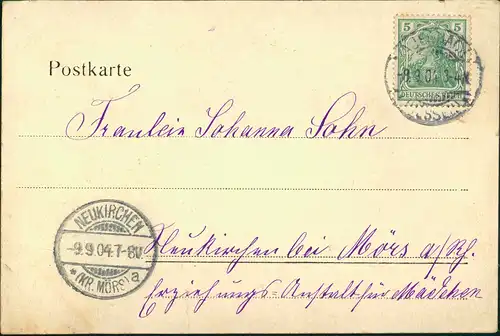 5 5
DEUTSCHES REICH
-8.9.04.3-4N.
Postkarte
Fraulein Johanna Sohn
NEUKIRCHEN
-9.9.04.7-8V.
* (KR. MÖRS) a
Neukirchen bei Mörs a/Rh.
Erziehungs-Anstalt für Mädchen